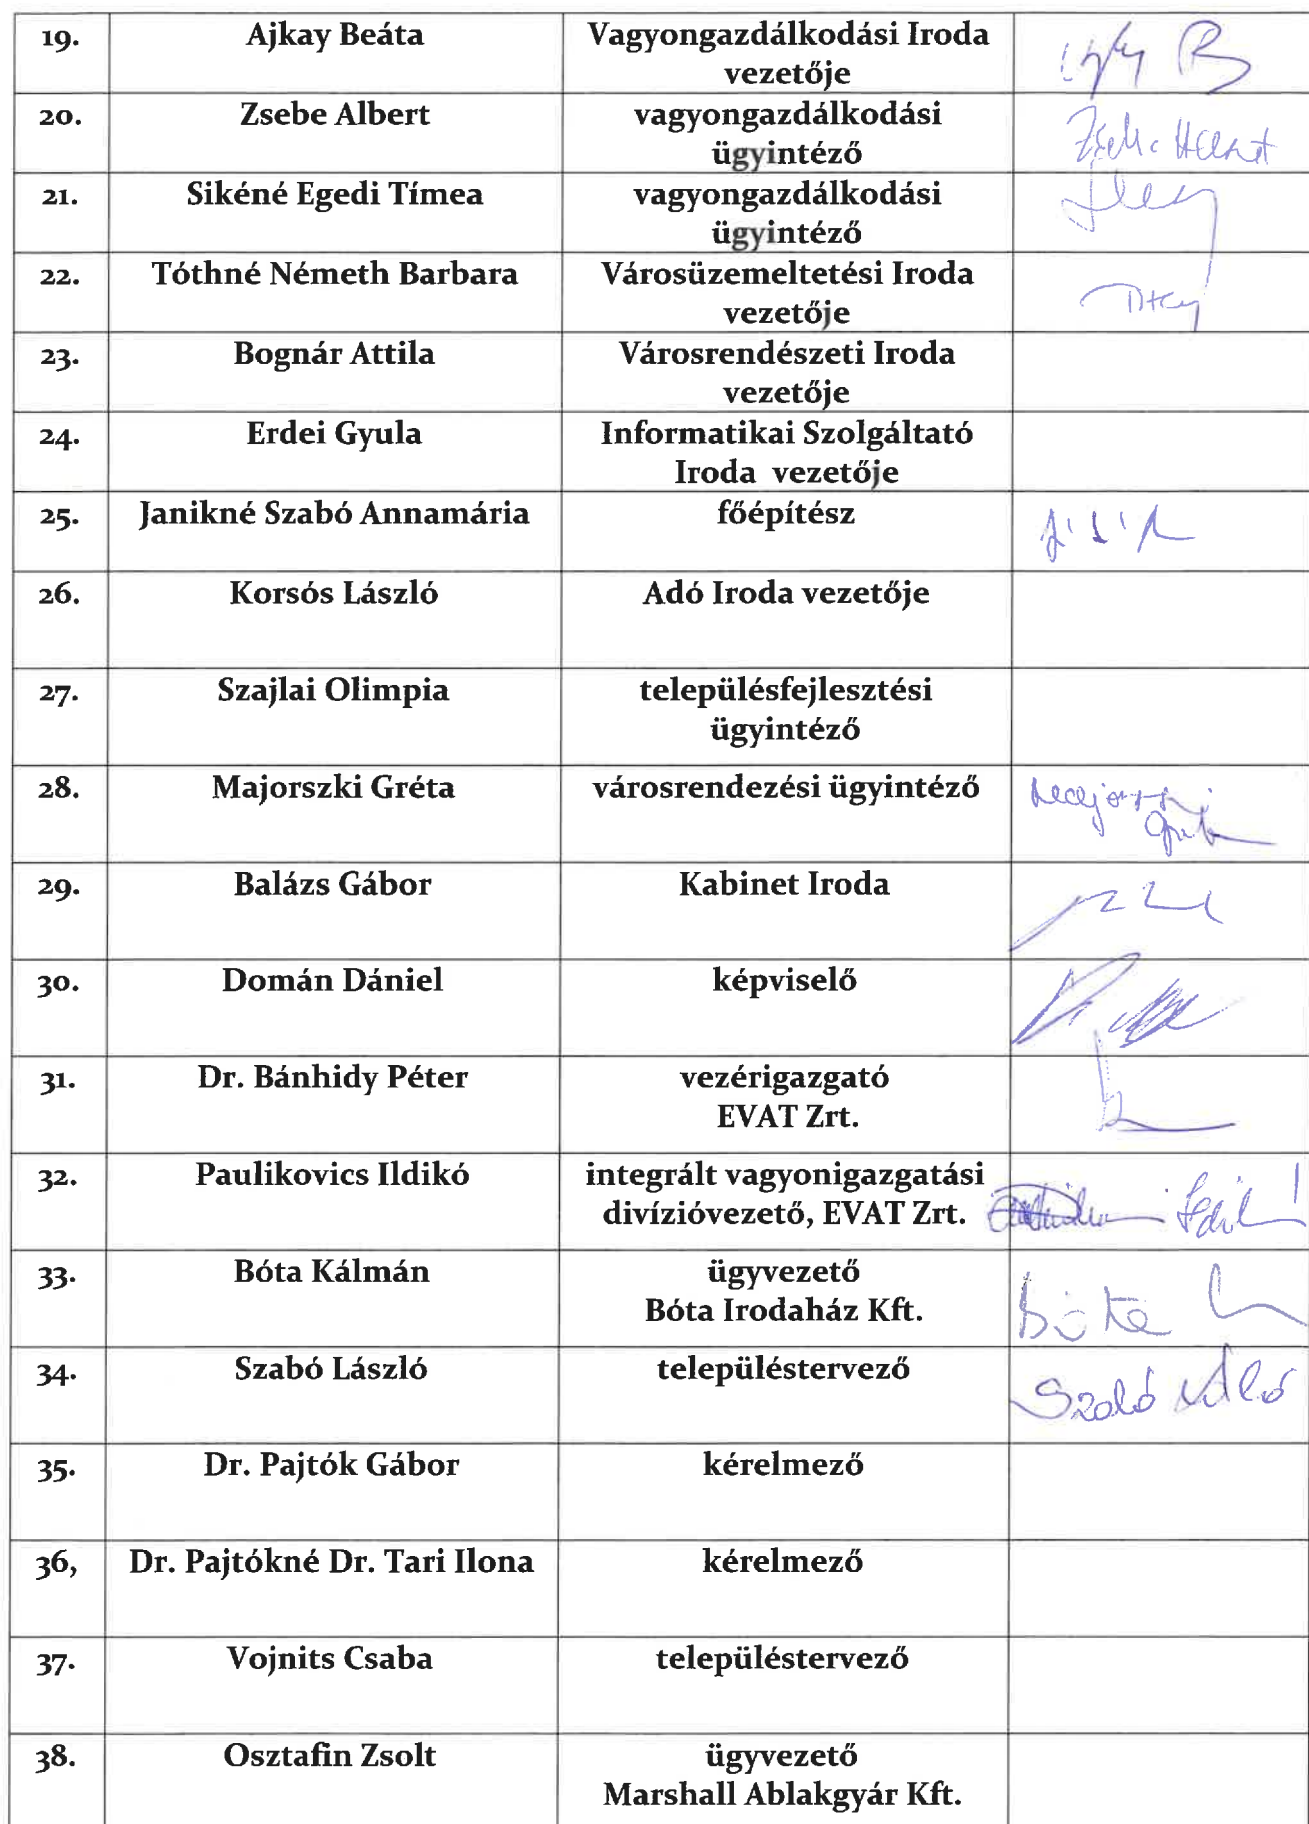 19. Ajkay Beáta Vagyongazdálkodási Iroda
vezetője
20. Zsebe Albert vagyongazdálkodási
ügyintéző
21. Sikéné Egedi Tímea vagyongazdálkodási
ügyintéző
22. Tóthné Németh Barbara Városüzemeltetési Iroda
vezetője
23. Bognár Attila Városrendészeti Iroda
vezetője
24. Erdei Gyula Informatikai Szolgáltató
Iroda vezetője
25. Janikné Szabó Annamária főépítész
26. Korsós László Adó Iroda vezetője
27. Szajlai Olimpia településfejlesztési
ügyintéző
28. Majorszki Gréta városrendezési ügyintéző
29. Balázs Gábor Kabinet Iroda
30. Domán Dániel képviselő
31. Dr. Bánhidy Péter vezérigazgató
EVAT Zrt.
32. Paulikovics Ildikó integrált vagyonigazgatási
divízióvezető, EVAT Zrt.
33. Bóta Kálmán ügyvezető
Bóta Irodaház Kft.
34. Szabó László településtervező
35. Dr. Pajtók Gábor kérelmező
36, Dr. Pajtókné Dr. Tari Ilona kérelmező
37. Vojnits Csaba településtervező
38. Osztafin Zsolt ügyvezető
Marshall Ablakgyár Kft.